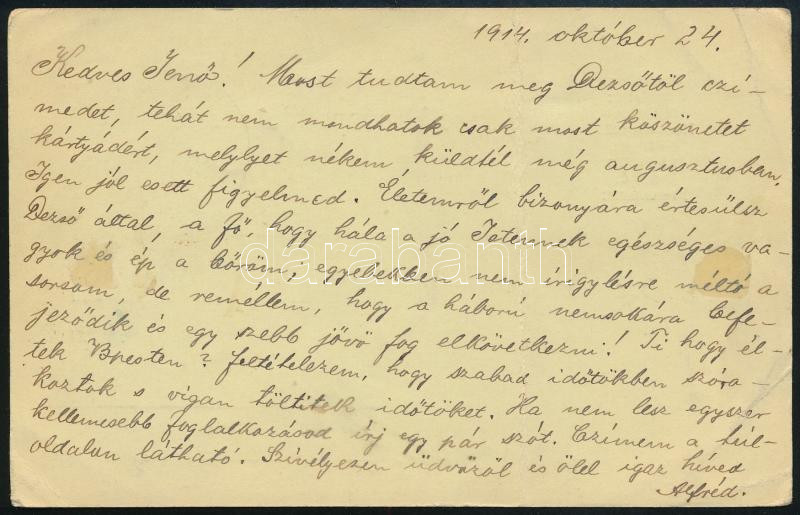 1914. október 24.
Kedves Jenő! Most tudtam meg Dezsőtől czí-
medet, tehát nem mondhatok csak most köszönetet
kártyádért, melylyet nékem küldtél még augusztusban.
Igen jól esett figyelmed. Életemről bizonyára értesülsz
Dezső által, a fő, hogy hála a jó Istennek egészséges va-
gyok és ép a bőröm; egyebekben nem írigylésre méltó a
sorsom, de reméllem, hogy a háború nemsokára befe-
jeződik és egy szebb jövő fog elkövetkezni! Ti hogy él-
tek Bpesten? Feltételezem, hogy szabad időtökben szóra-
koztok s vígan töltitek időtöket. Ha nem lesz egyszer
kellemesebb foglalkozásod írj egy pár szót. Czímem a túl-
oldalon látható. Szívélyesen üdvözöl és ölel igaz híved
Alfréd.
darabanth